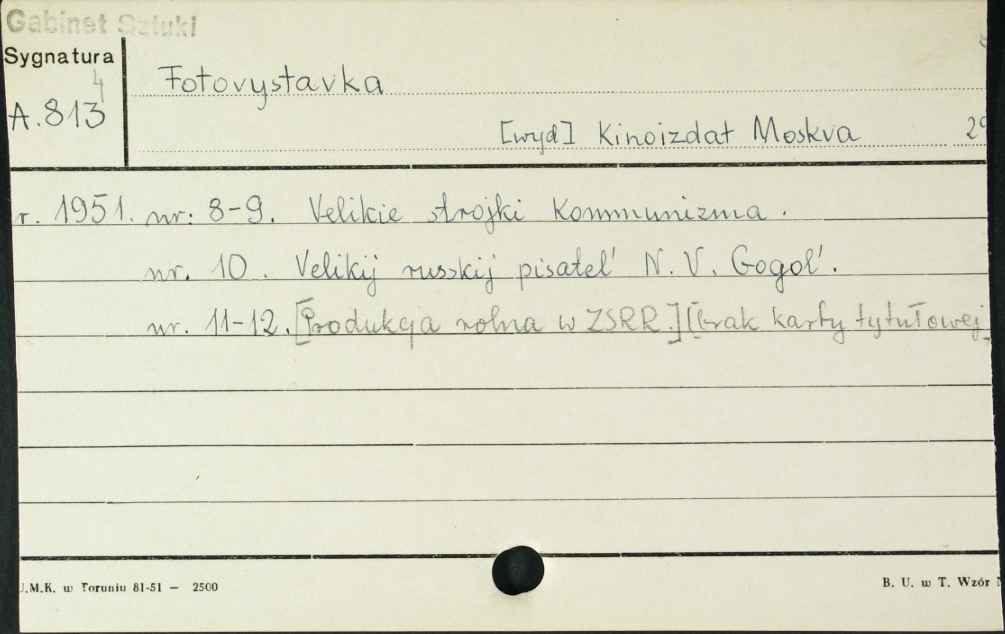 Gabinet Sztuki
Sygnatura
4
A.813
Fotovystavka
[wyd] Kinoizdat Moskva 29
r. 1951. nr: 8-9. Velikie strojki Kommunizma.
nr. 10. Velikij russkij pisatel' N. V. Gogol'.
nr. 11-12. [Produkcja rolna w ZSRR.] [brak karty tytułowej
.M.K. w Toruniu 81-51 — 2500
B. U. w T. Wzór